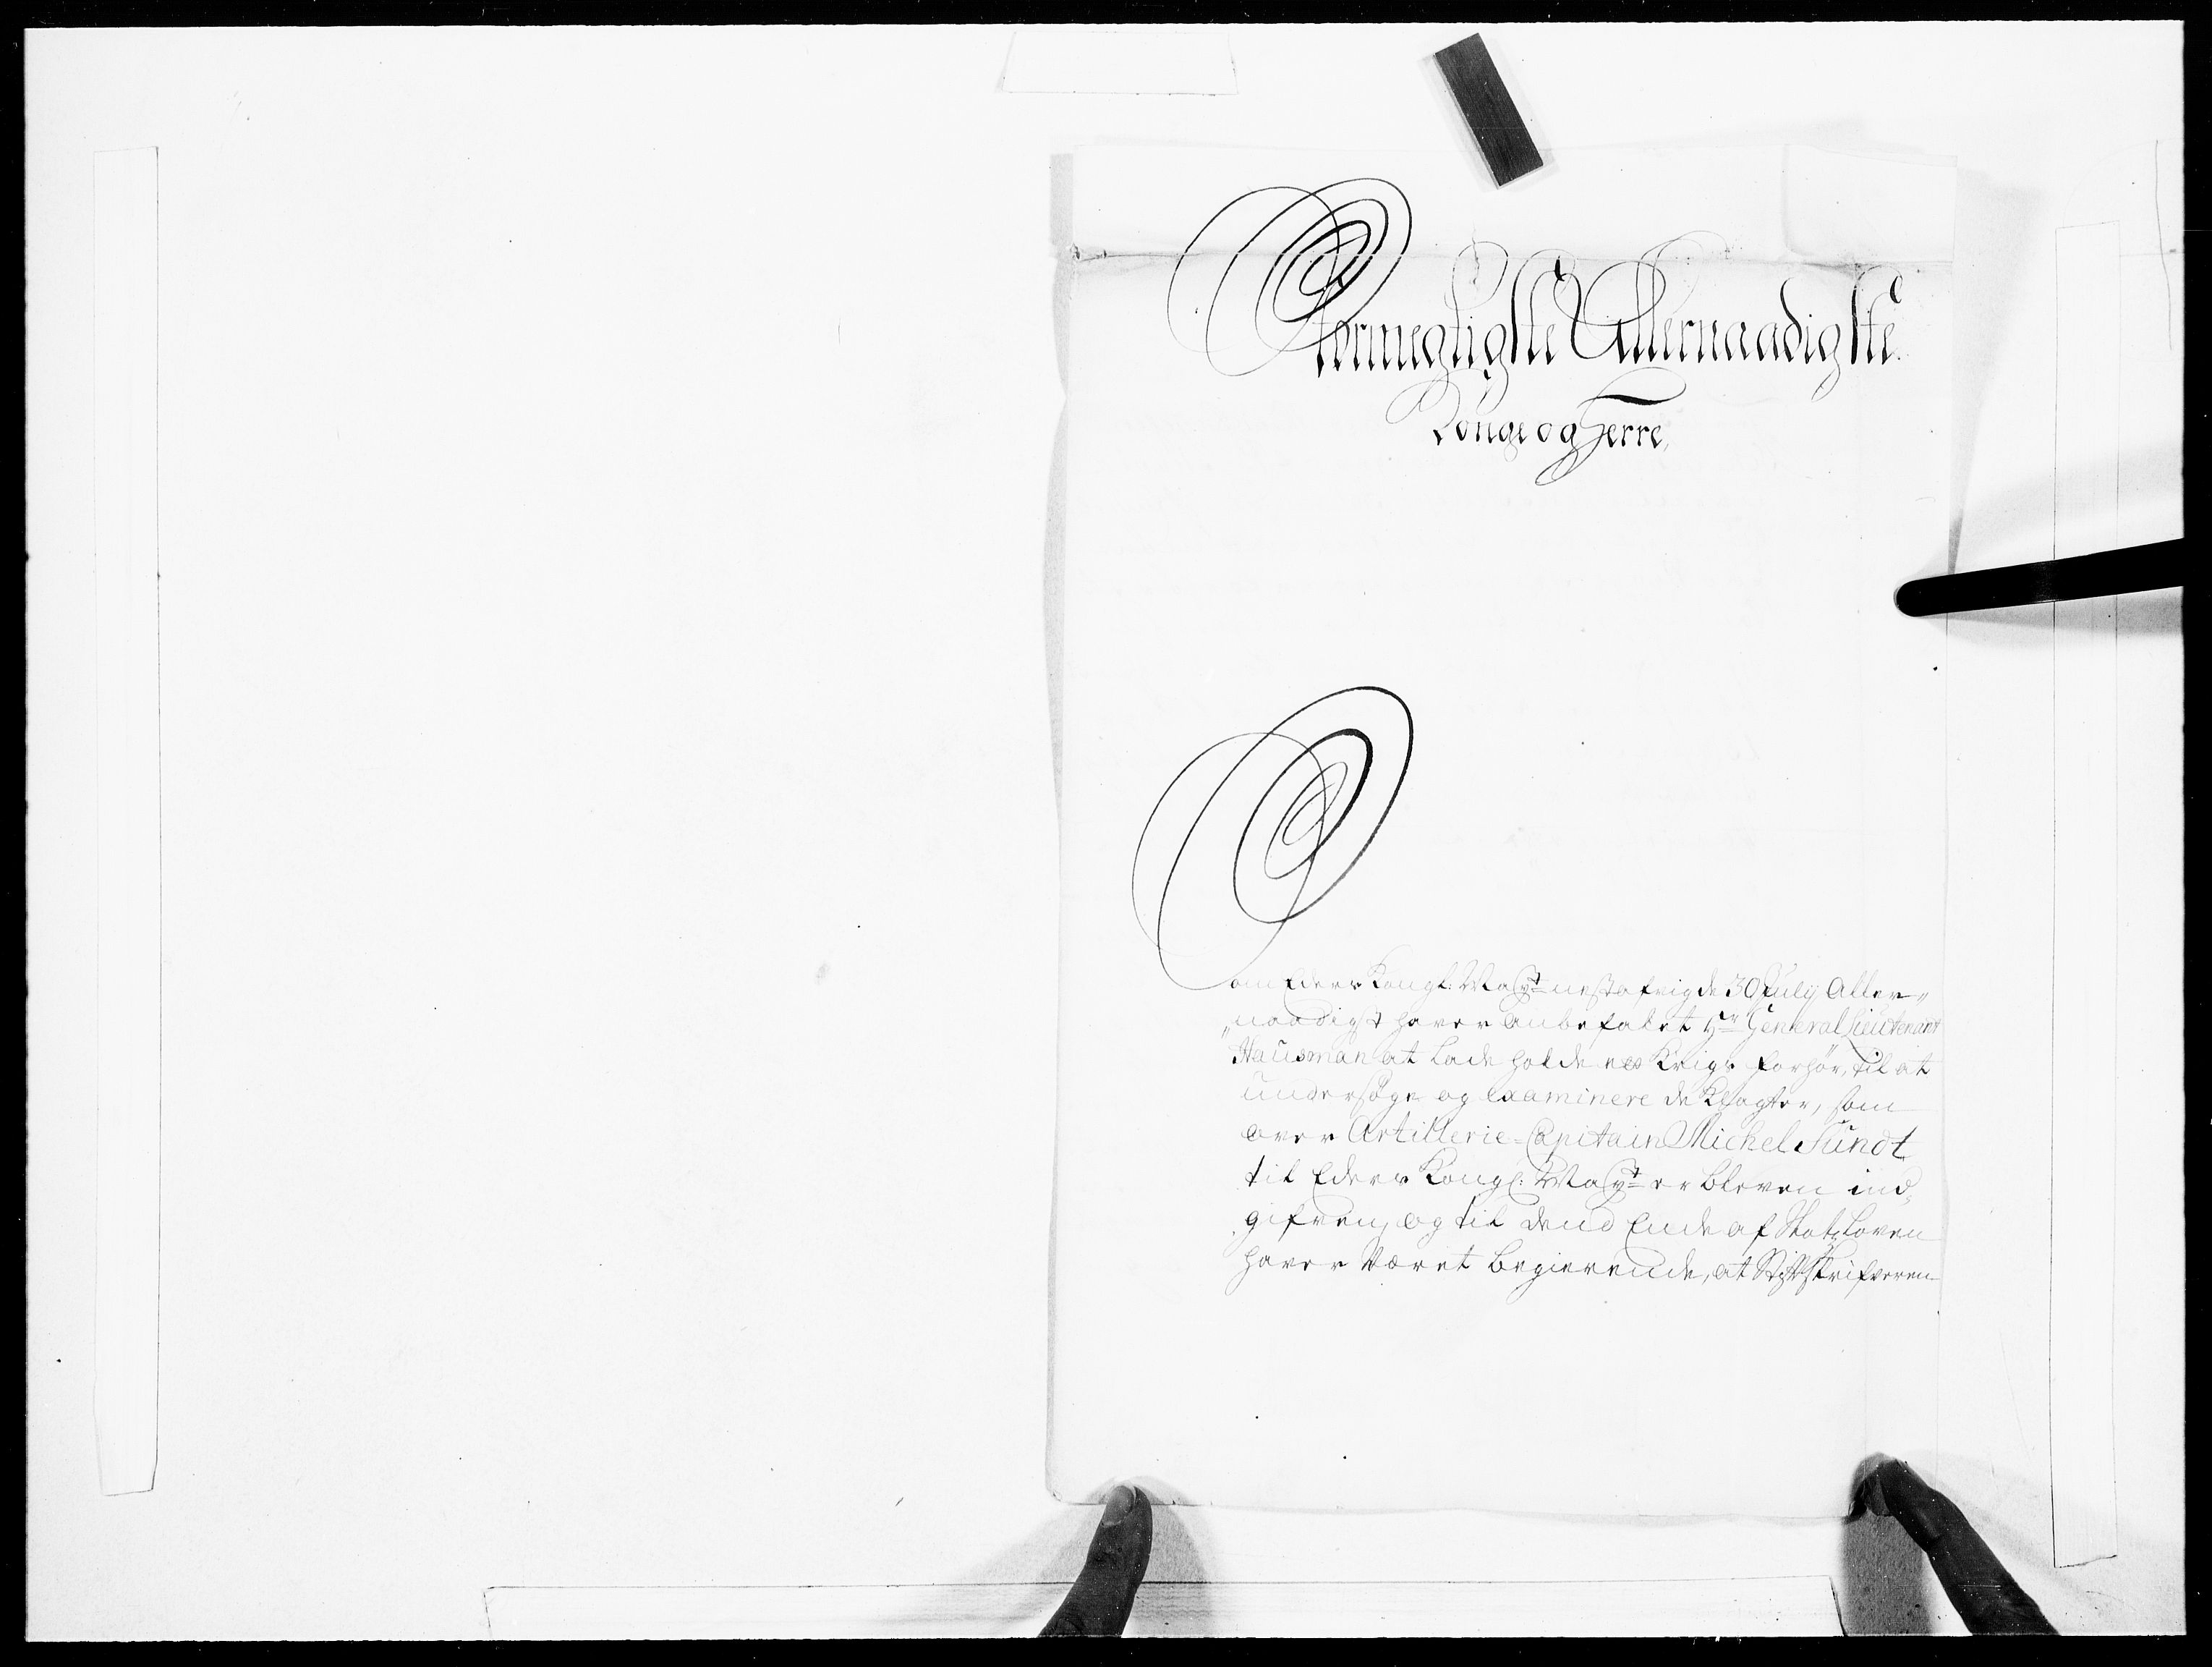 Stormegtigste Allernaadigste
Konge og Herre,
Som Eders Kongl: Mayt nestafvigte 30 July Aller-
naadigst haver anbefalet Hr General Lieutenant
Hausman at lade holde et Krigs forhør, til at
undersøge og examinere de Klagter, som
over Artillerie-Capitain Michel Sundt
til Eders Kongl: Mayt er bleven ind-
gifven, og til dend Ende af Slotzloven
haver været begierende, at Stiftskrifveren